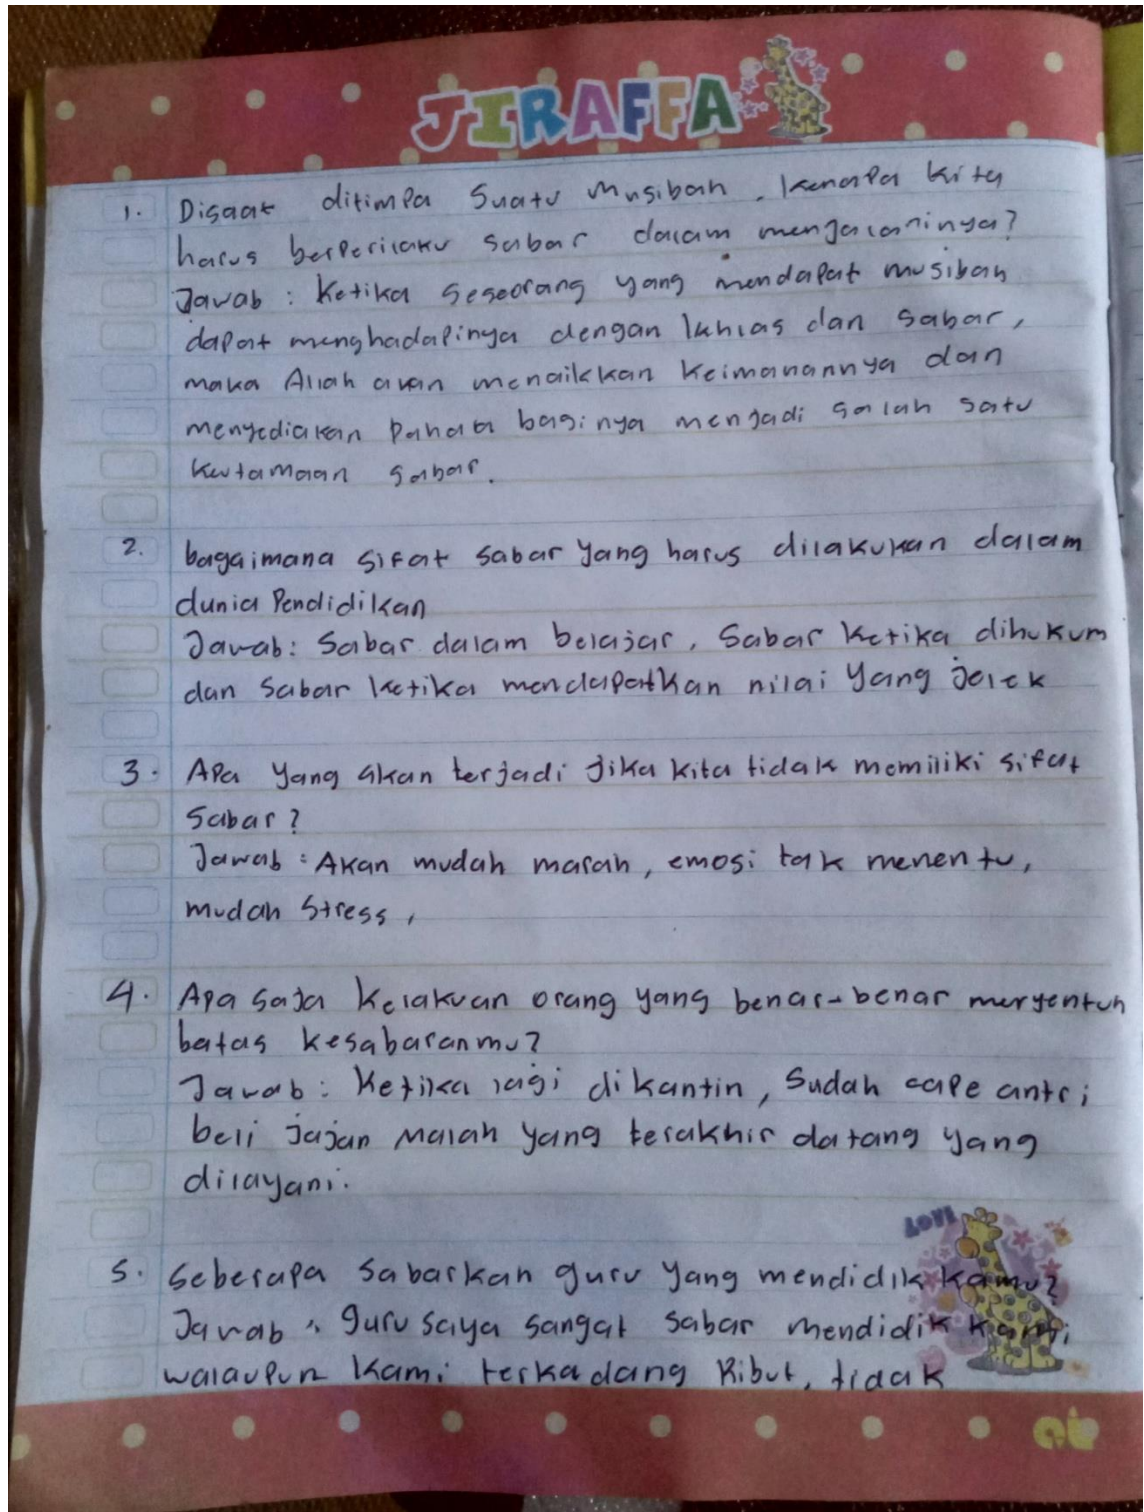 JIRAFFA
1. Disaat ditimpa suatu musibah, kenapa kita
harus berperilaku sabar dalam menjalaninya?
Jawab : Ketika seseorang yang mendapat musibah
dapat menghadapinya dengan Ikhlas dan sabar,
maka Allah akan menaikkan Keimanannya dan
menyediakan Pahala baginya menjadi salah satu
Keutamaan sabar.
2. bagaimana sifat sabar yang harus dilakukan dalam
dunia Pendidikan
Jawab : Sabar dalam belajar, Sabar Ketika dihukum
dan Sabar Ketika mendapatkan nilai yang jelek
3. Apa yang akan terjadi jika kita tidak memiliki sifat
Sabar ?
Jawab : Akan mudah marah, emosi tak menentu,
mudah Stress,
4. Apa saja Kelakuan orang yang benar-benar menyentuh
batas kesabaranmu?
Jawab : Ketika lagi dikantin, Sudah cape antri
beli Jajan Malah yang terakhir datang yang
dilayani.
LOVE
5. Seberapa Sabarkah guru yang mendidik kamu?
Jawab : guru saya sangat sabar mendidik kami
walaupun kami terkadang Ribut, tidak